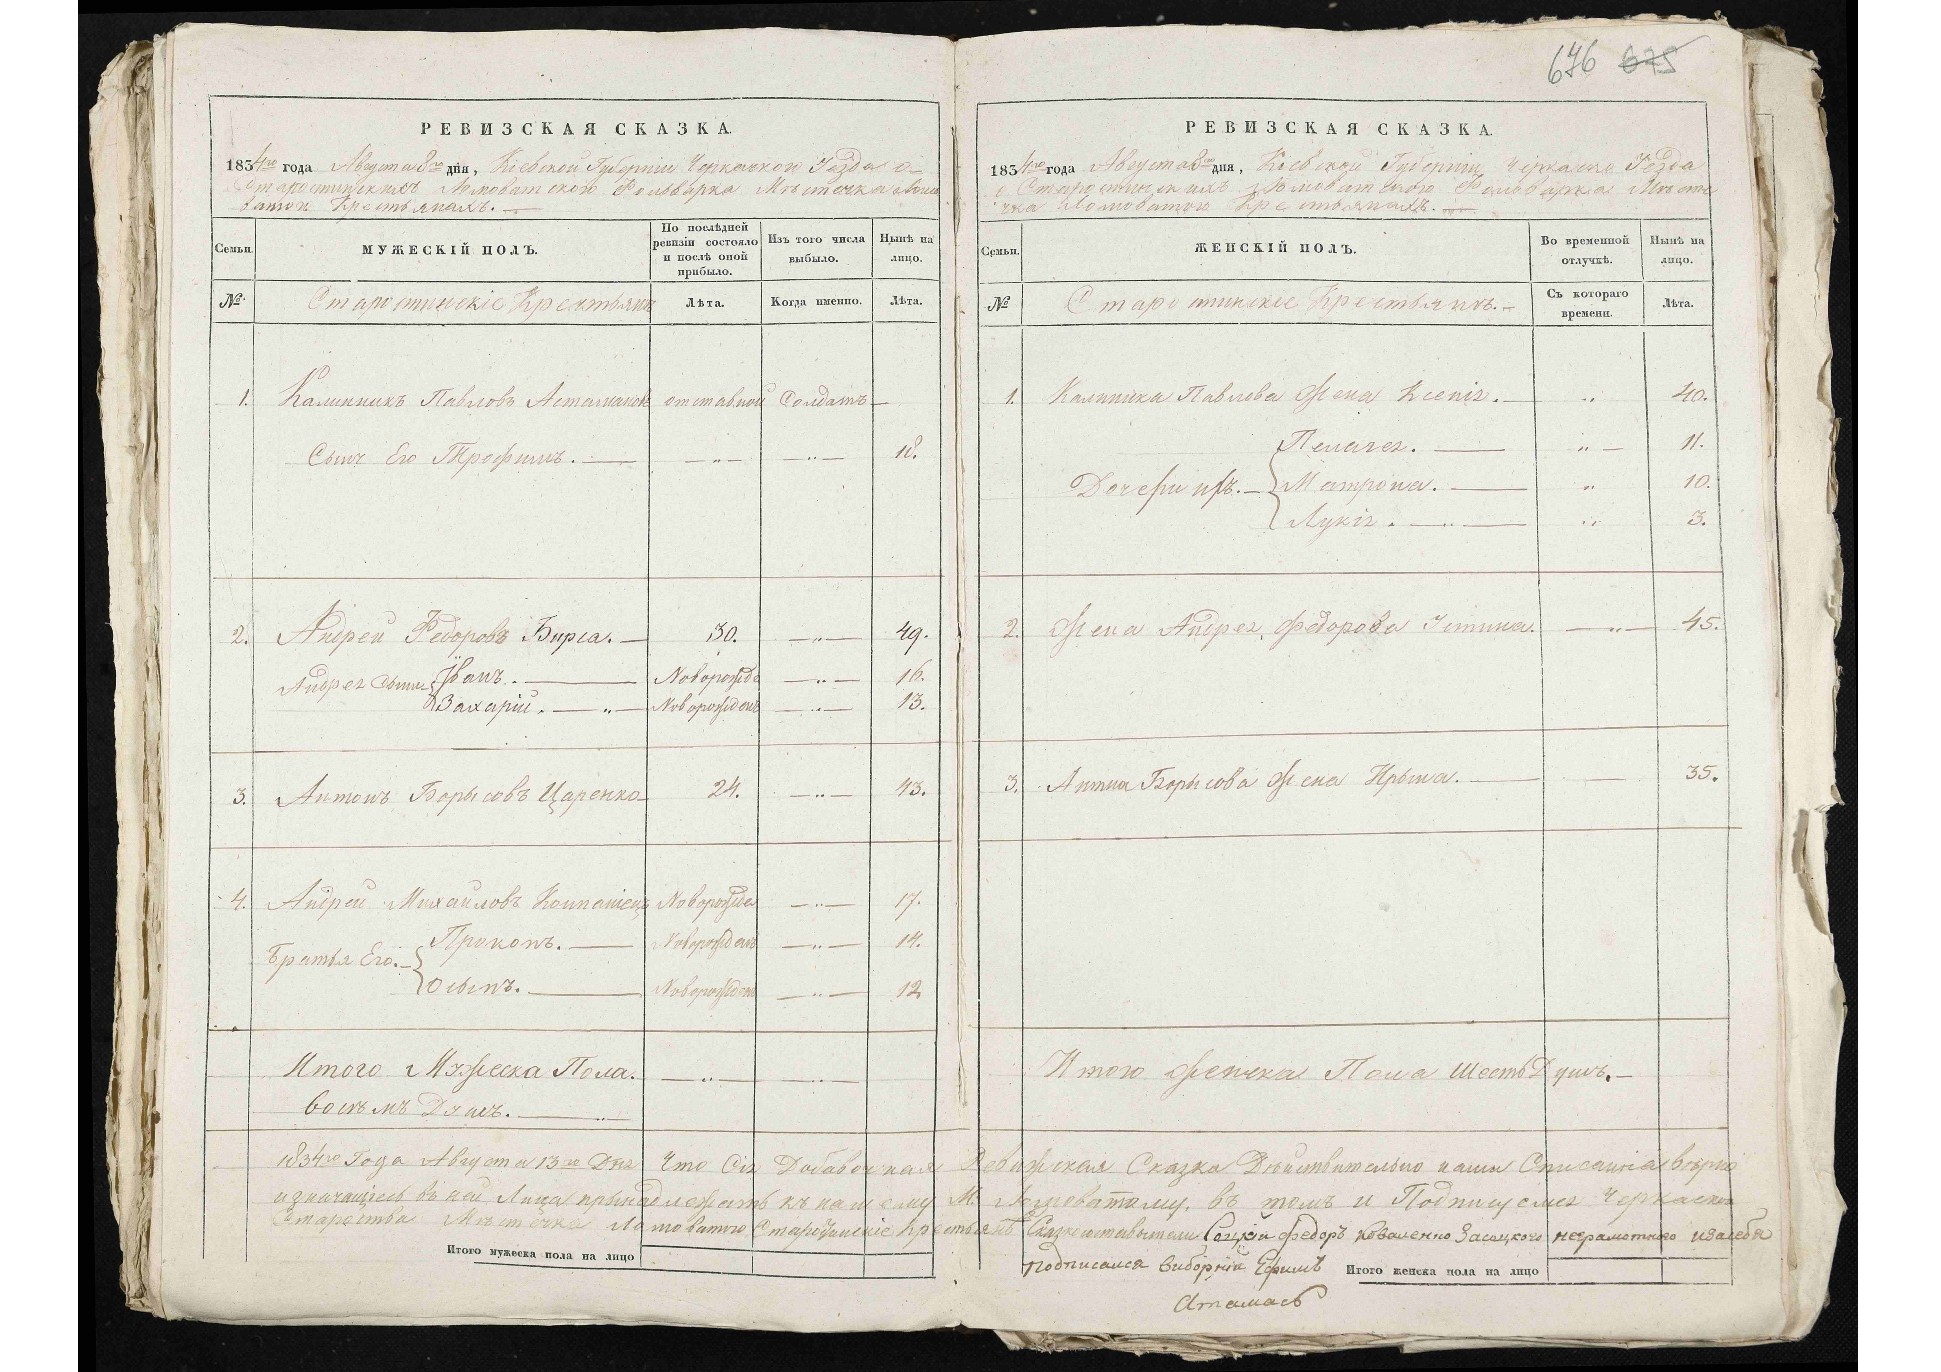 676 675
РЕВИЗСКАЯ СКАЗКА.
1834го года Августа 8го дня, Кіевской Губерніи Черкаской Уезда о
Старостинскихъ Ломоватского Фольварка Мѣстечка Ломо
ватой Крестьянахъ.
Семьи. МУЖЕСКІЙ ПОЛЪ. По послѣдней ревизіи состояло и послѣ оной прибыло. Изъ того числа выбыло. Нынѣ на лицо.
№ Старостинскіе Крестьянъ Лѣта. Когда именно. Лѣта.
1. Калинникъ Павловъ отставной Солдатъ
Сынъ Его Трофимъ. — „ — — „ — 18.
2. Андрей Федоровъ Бирса. 30. — „ — 49.
Андрея Сыны Иванъ. Новорожде — „ — 16.
Захарій. — „ — Новорожденъ — „ — 13.
3. Антонъ Борысовъ Царенко 24. — „ — 43.
4. Андрей Михайловъ Компаніецъ Новорожде — „ — 17.
Братья Его. Прокопъ. Новорожденъ — „ — 14.
Осыпъ. Новорожденъ — „ — 12
Итого Мужеска Пола. — „ — — „ —
восемъ Душъ. — „
РЕВИЗСКАЯ СКАЗКА.
1834го года Августа 8го дня, Кіевской Губерніи Черкаско Уезда
о Старостинскихъ Ломоватского Фольварка Мѣсте
чка Ломоватого Крестьянахъ.
Семьи. ЖЕНСКІЙ ПОЛЪ. Во временной отлучкѣ. Нынѣ на лицо.
№ Старостинскіе Крестьянъ. Съ котораго времени. Лѣта.
1. Калиника Павлова Жена Ксенія. „ 40.
Пелагея. „ — 11.
Дочери ихъ. Матрона. „ 10.
Лукія. — „ — „ 3.
2. Жена Андрея Федорова Устина. — „ — 45.
3. Антна Борысова Жена Ирына. — 35.
Итого Женска Пола шесть Душъ.
1834го Года Августа 13го Дня Что Сія Добавочная Ревижская Сказка Дѣйствительно нами Списанна вѣрно
и значащіесь въ ней Лица прынадлежатъ къ нашему М. въ томъ и Подписуемся Черкаского
Староства Мѣстечка Ломоватого Старостинскіе Крестьянъ Сказкосоставытели Соцкій Федоръ Коваленко За соцкого неграмотного и за себя
Подписался Виборній Ефимъ
Атамасъ
Итого мужеска пола на лицо
Итого женска пола на лицо